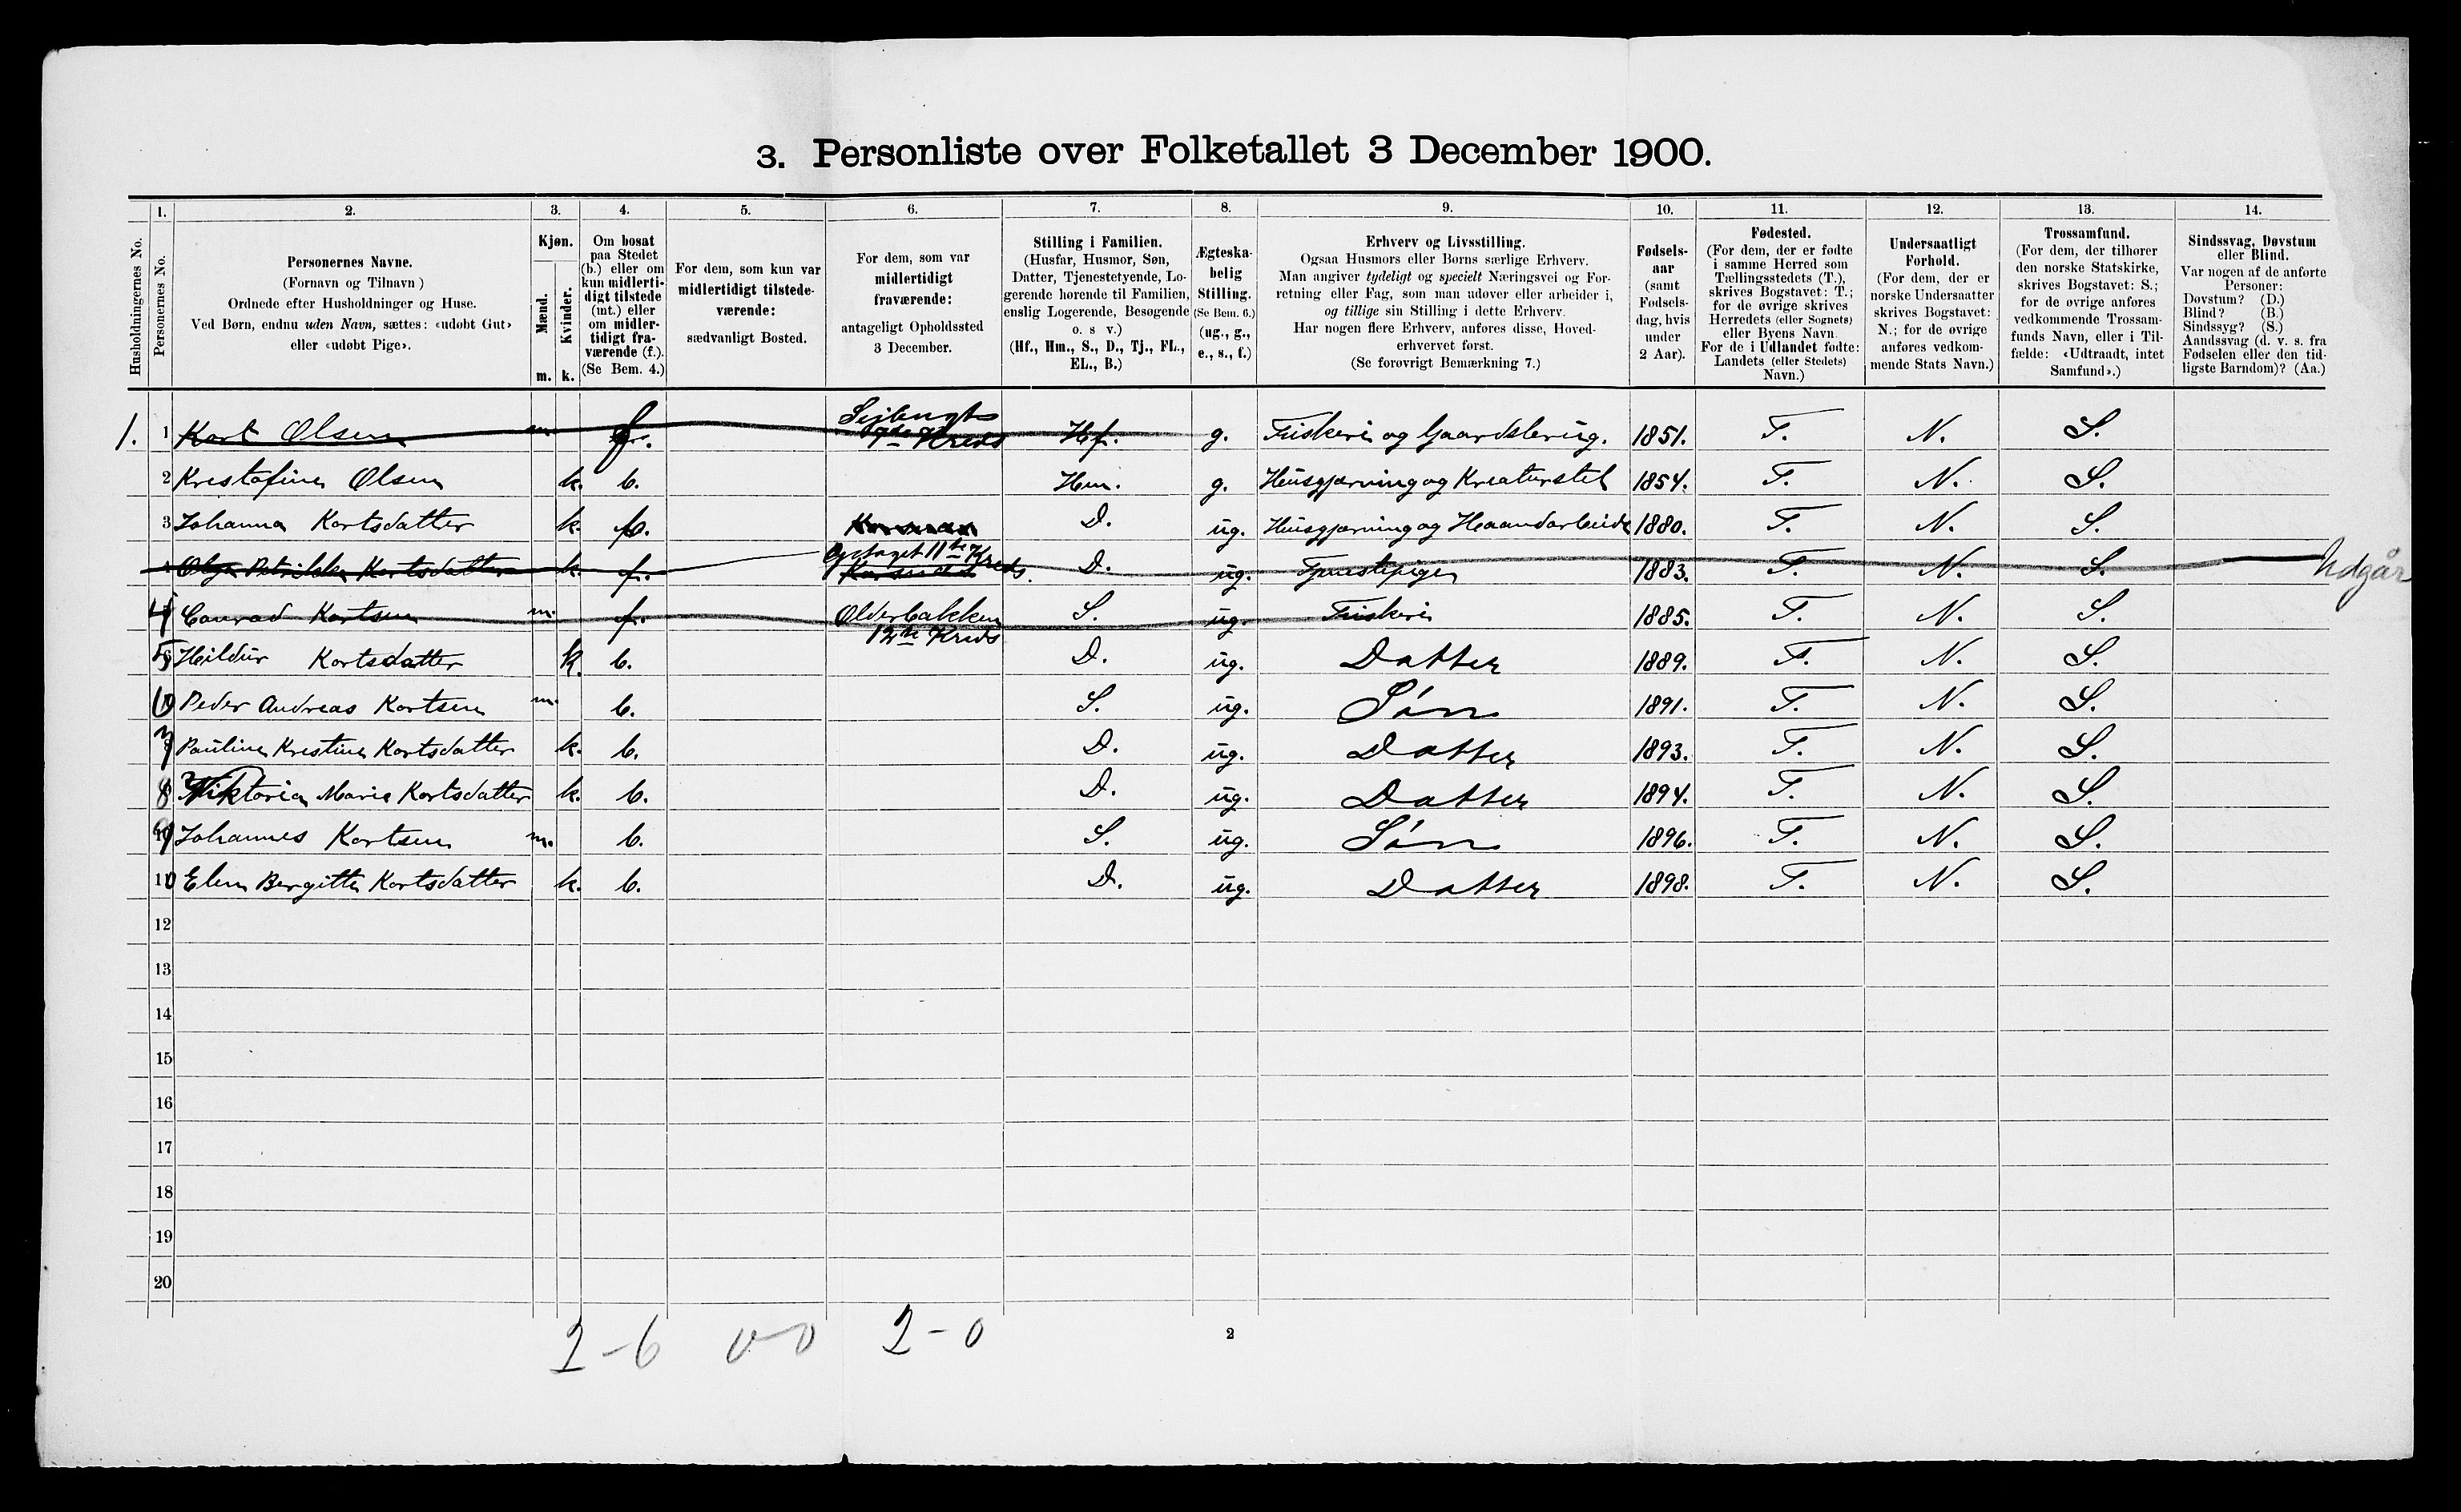 3. Personliste over Folketallet 3 December 1900.
Husholdningernes No.
1.
Personernes No.
2.
Personernes Navne.
(Fornavn og Tilnavn )
Ordnede efter Husholdninger og Huse.
Ved Børn, endnu uden Navn, sættes: «udøbt Gut»
eller «udøbt Pige».
3.
Kjøn.
Mænd.
Kvinder.
m. k.
4.
Om bosat
paa Stedet
(b.) eller om
kun midlerti-
digt tilstede
(mt.) eller
om midler-
tidigt fra-
værende (f.).
(Se Bem. 4.)
5.
For dem, som kun var
midlertidigt tilstede-
værende:
sædvanligt Bosted.
6.
For dem, som var
midlertidigt
fraværende:
antageligt Opholdssted
3 December.
7.
Stilling i Familien.
(Husfar, Husmor, Søn,
Datter, Tjenestetyende, Lo-
gerende hørende til Familien,
enslig Logerende, Besøgende
o. s v.)
(Hf., Hm., S., D., Tj., FL.,
EL., B.)
8.
Ægteska-
belig
Stilling.
(Se Bem. 6.)
(ug., g.,
e., s., f.)
9.
Erhverv og Livsstilling.
Ogsaa Husmors eller Børns særlige Erhverv.
Man angiver tydeligt og specielt Næringsvei og For-
retning eller Fag, som man udøver eller arbeider i,
og tillige sin Stilling i dette Erhverv.
Har nogen flere Erhverv, anføres disse, Hoved-
erhvervet først.
(Se forøvrigt Bemærkning 7.)
10.
Fødsels-
aar
(samt
Fødsels-
dag, hvis
under
2 Aar).
11.
Fødested.
(For dem, der er fødte
i samme Herred som
Tællingsstedets (T.),
skrives Bogstavet: T.;
for de øvrige skrives
Herredets (eller Sognets)
eller Byens Navn.
For de i Udlandet fødte:
Landets (eller Stedets)
Navn.)
12.
Undersaatligt
Forhold.
(For dem, der er
norske Undersaatter
skrives Bogstavet:
N.; for de øvrige
anføres vedkom-
mende Stats Navn.)
13.
Trossamfund.
(For dem, der tilhører
den norske Statskirke,
skrives Bogstavet: S.;
for de øvrige anføres
vedkommende Trossam-
funds Navn, eller i Til-
fælde: «Udtraadt, intet
Samfund».)
14.
Sindssvag, Døvstum
eller Blind.
Var nogen af de anførte
Personer:
Døvstum? (D.)
Blind? (B.)
Sindssyg? (S.)
Aandssvag (d. v. s. fra
Fødselen eller den tid-
ligste Barndom)? (Aa.)
1. 1 Kort Olsen m. f. 9de Kreds Hf. g. Fiskeri og Gaardsbrug. 1851. T. N. S.
2 Krestofine Olsen k. b. Hm. g. Husgjerning og Kreaturstel 1854. T. N. S.
3 Johanna Kortsdatter k. b. D. ug. Husgjerning og Haandarbeide 1880. T. N. S.
Olga Petrikke Kortsdatter k. f. Optaget 11te Kreds D. ug. Tjenestepige 1883. T. N. S. Udgår
4 Conrad Kortsen m. f. Olderbakken 12te Kreds S. ug. Fiskeri 1885. T. N. S.
5 Hildur Kortsdatter k. b. D. ug. Datter 1889. T. N. S.
6 Peder Andreas Kortsen m. b. S. ug. Søn 1891. T. N. S.
7 Pauline Kristine Kortsdatter k. b. D. ug. Datter 1893. T. N. S.
8 Viktoria Marie Kortsdatter k. b. D. ug. Datter 1894. T. N. S.
9 Johannes Kortsen m. b. S. ug. Søn 1896. T. N. S.
10 Elen Bergitte Kortsdatter k. b. D. ug. Datter 1898. T. N. S.
12
13
14
15
16
17
18
19
20
2-6 0-0 2-0
2